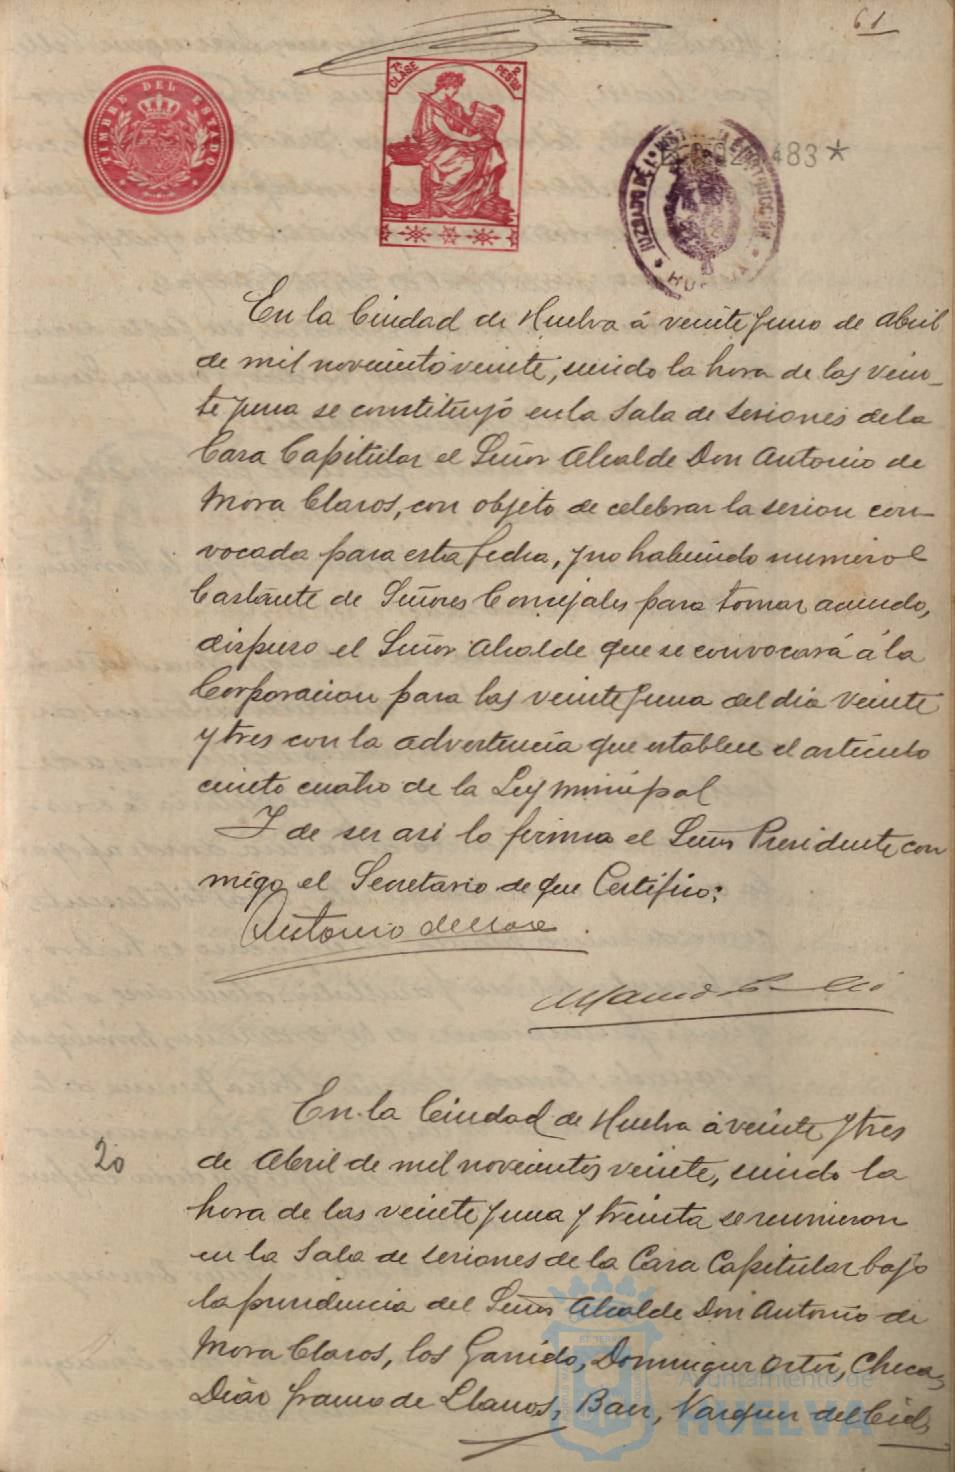 61
TIMBRE DEL ESTADO
7ª CLASE 2 PESTAS
483 *
JUZGADO DE 1ª INSTANCIA E INSTRUCCIÓN
HUELVA
En la Ciudad de Huelva á veinte y uno de Abril
de mil novecientos veinte, siendo la hora de las vein-
te y una se constituyó en la Sala de sesiones de la
Casa Capitular el Señor Alcalde Don Antonio de
Mora Claros, con objeto de celebrar la sesion con-
vocada para esta fecha, y no habiendo numero
bastante de Señores Concejales para tomar acuerdo,
dispuso el Señor Alcalde que se convocará á la
Corporacion para las veinte y una del dia veinte
y tres con la advertencia que establece el artículo
ciento cuatro de la Ley municipal
Y de ser asi lo firma el Señor Presidente con
migo el Secretario de que Certifico:
Antonio de Mora
20
En la Ciudad de Huelva á veinte y tres
de Abril de mil novecientos veinte, siendo la
hora de las veinte y una y treinta se reunieron
en la Sala de sesiones de la Casa Capitular bajo
la presidencia del Señor Alcalde Don Antonio de
Mora Claros, los Garrido, Dominguez Ortiz, Checa,
Diaz franco de Llanos, Baez, Vazquez del Cid,
Ayuntamiento de
HUELVA